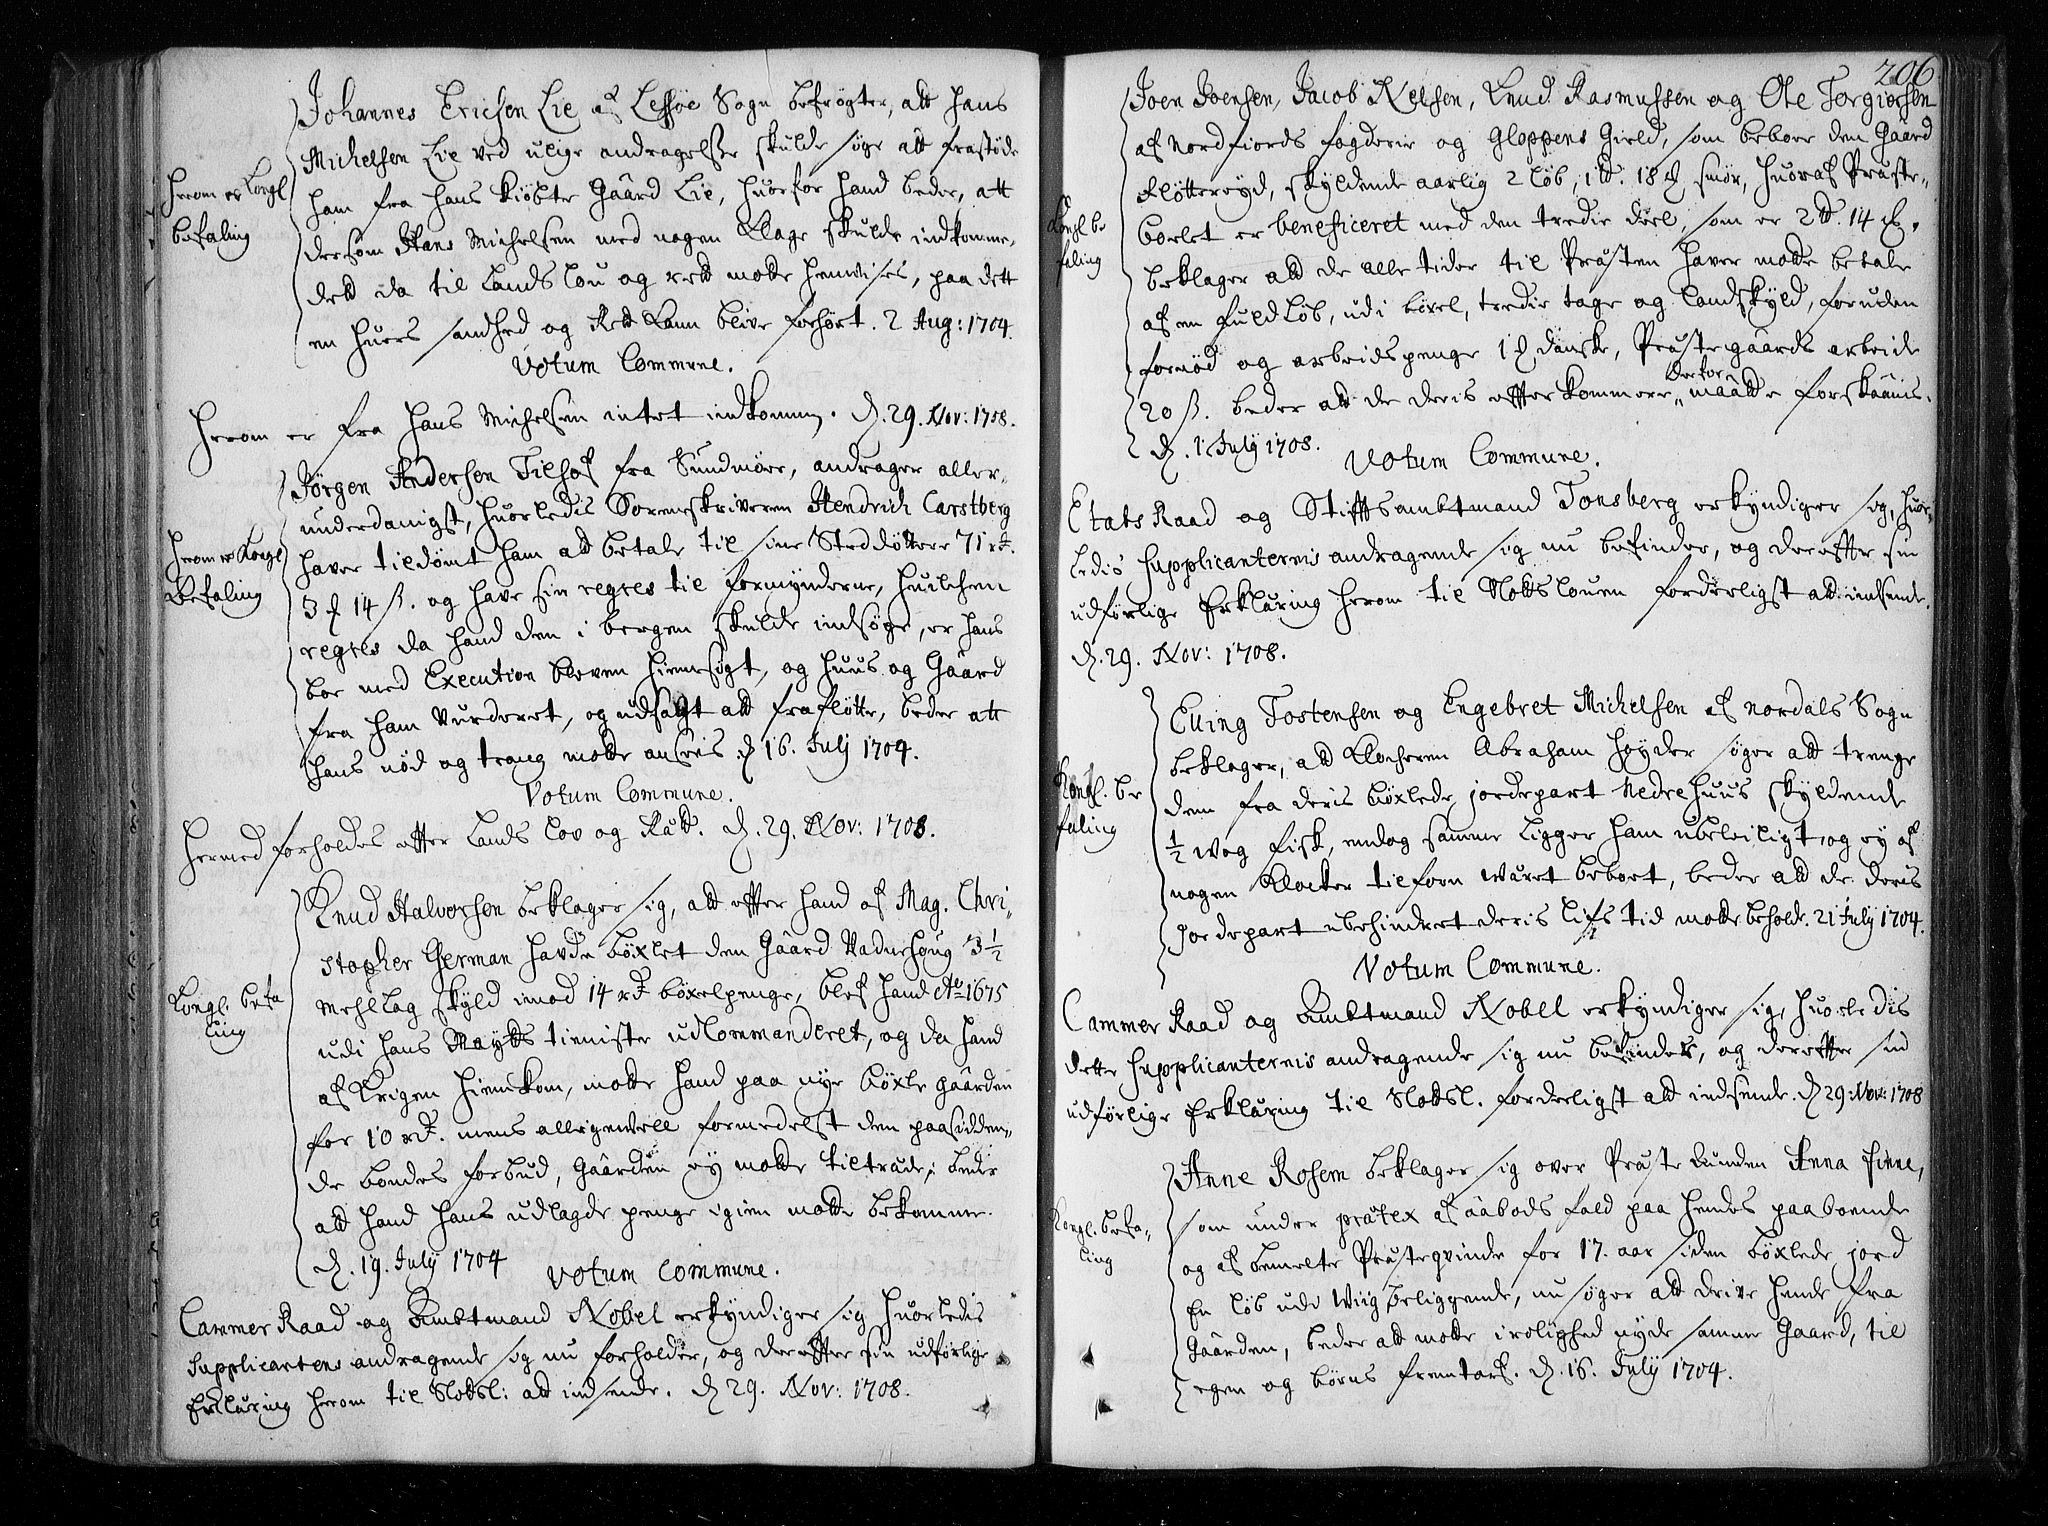 Johannes Erichsen Lie af Lessøe Sogn befrögter, att Hans
Michelsen Lie ved ulige andragelse skulde søge att frastøde
ham fra hans kiøbte Gaard Lie, huorfor hand beder, att
Herom er Kongl
befaling
dersom Hans Michelsen med nogen Klage skulde indkomme,
det da til Landslou og ret motte henvises, paa dett
en huers sandhed og Ret kan blive forhørt. 2 Aug: 1704.
Votum Commune.
Herom er fra Hans Michelsen intet indkommen. d. 29. Nov: 1708.
Jørgen Andersen Tilset fra Sundmöer, andrager aller-
underdanigst, huorledis Sorenskriveren Hendrich Carstberg
haver tildømt ham att betale til sine Steddøttere 71 rd.
Herom er Kongl
Befaling
3 ₰ 14 ß. og have sin regres til formynderne, huilchen
regres da hand den i bergen skulde indsøge, er hans
boe med Execution bleven hiemsøgt, og Huus og Gaard
fra ham Vurderet, og udsagt att fraflötte, beder att
hans nød og trang motte ansees d. 16. July 1704.
Votum Commune.
Hermed forholdes efter Lands Lov og Rätt. d. 29. Nov: 1708.
Knud Halvorsen beklager sig, att efter hand af Mag. Chri-
stopher German hafde böxlet den Gaard 3 1/2
Mehllag skyld imod 14 rd. böxelpenge, blef hand Ao 1675
Kongl. befa
ling
udi Hans Maytts tieniste udCommanderet, og da hand
af Krigen hiemkom, motte hand paa nye böxle gaarden
for 10 rd. mens alligevell formedelst den paasidden-
de bondes forbud, Gaarden ey motte tiltræde, beder
att hand hans udlagde penge igien motte bekomme.
d. 19. July 1704
Votum Commune.
Cammer Raad og Ambtmand Nobel erkyndiger sig huorledis
Supplicantens andragende sig nu forholder, og derefter sin udförlige
Erklæring herom til Slotsl: att indsende. d. 29. Nov: 1708.
206
Joen Joensen, Jacob Nelsen, Knud Rasmussen og Ole Torgiersen
af Nordfiords fogderie og Gloppens Gield, som beboer den Gaard
Fløtterøyd, skyldende aarlig 2 løb, 1 18 smör, huoraf Præste-
Kongl. be
faling
bolet er beneficeret med den tredie deel, som er 2 14
beklager att de alle tider til Præsten haver motte betale
af en fuld Løb, udi böxel, tredie tage og landskyld, foruden
og arbeidspenge 1 danske, Præstegaards arbeide
20 ß. beder att de deris efterkommere derfor maatte forskaanis.
d. 1 July 1708.
Votum Commune.
Etats Raad og Stiftsambtmand Tonsberg erkyndiger sig, huor-
ledis Supplicanternis andragende sig nu befinder, og derefter sin
udförlige Erklæring herom til Slotslouen forderligst att indsende.
d. 29. Nov: 1708.
Elling Tostensen og Engebret Michelsen af Nordals Sogn
beklager, att Klocheren Abraham Høyder søger att trenge
Kongl. be
faling
dem fra deris böxlede jordepart Nedrehuus skyldende
1/2 wog fisk, endog samme ligger ham ubeleiligt, og ey af
nogen Klocker tilforn været beboet, beder att de deris
Jordepart ubehindret deris lifs tid motte beholde. 21 July 1704.
Votum Commune.
Cammer Raad og Ambtmand Nobel erkyndiger sig, huorledis
dette Supplicanternis andragende sig nu befinder, og derefter sin
udförlige Erklæring til Slotsl. forderligst att indsende. d. 29. Nov: 1708
Anne Rosem beklager sig over Præste Anna Finne,
som under prætex af aabods fald paa hendes paaboende
Kongl. befa-
ling
og af bemelte Præsteqvinde for 17. aar siden böxlede jord
En löb udi Wiig beliggende, nu søger att drive hende fra
Gaarden, beder att motte i rolighed nyde samme Gaard, til
egen og börns fremtarf. d. 16. July 1704.